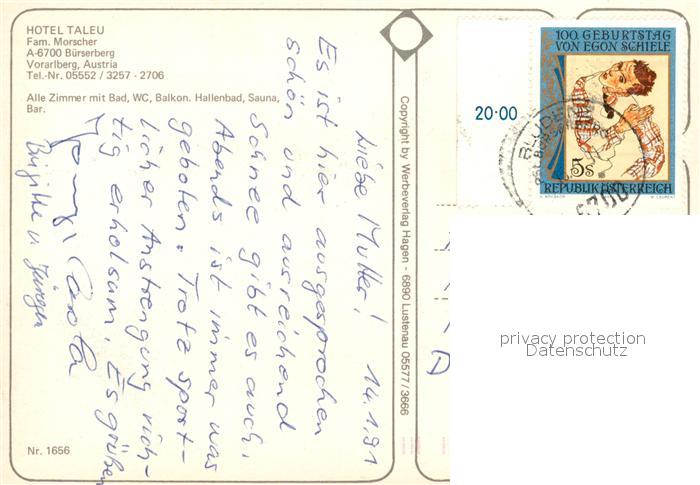 HOTEL TALEU
Fam. Morscher
A-6700 Bürserberg
Vorarlberg, Austria
Tel.-Nr. 05552 / 3257 - 2706
Alle Zimmer mit Bad, WC, Balkon. Hallenbad, Sauna,
Bar.
14.1.91
Liebe Mutter!
Es ist hier ausgesprochen
schön und ausreichend
Schnee gibt es auch.
Abends ist immer was
geboten. Trotz sport-
licher Anstrengung rich-
tig erholsam. Es grüßen
Carola
Brigitte u. Jürgen
Nr. 1656
Copyright by Werbeverlag Hagen - 6890 Lustenau 05577/3666
20·00
100. GEBURTSTAG
VON EGON SCHIELE
5s
REPUBLIK ÖSTERREICH
BLUDENZ
6700
A
privacy protection
Datenschutz